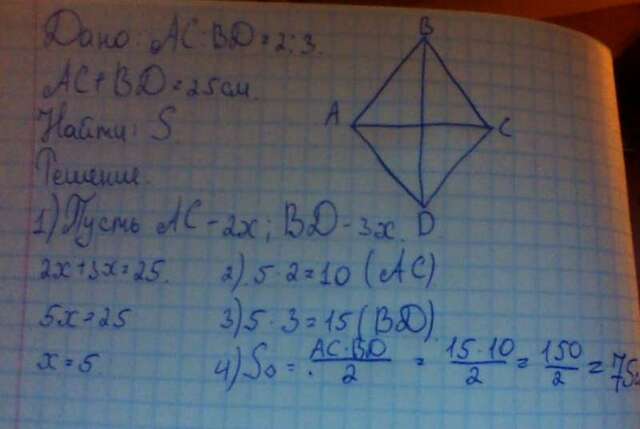 Дано: AC:BD=2:3.
AC+BD=25см.
Найти: S.
Решение.
B
A
C
D
1) Пусть AC-2x; BD-3x.
2x+3x=25.
5x=25
x=5.
2) 5·2=10 (AC)
3) 5·3=15 (BD)
4) S₀ = AC·BD/2 = 15·10/2 = 150/2 =